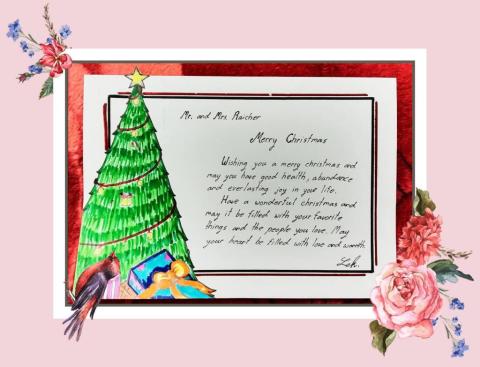 Mr. and Mrs. Raicher
Merry Christmas
Wishing you a merry christmas and
may you have good health, abundance
and everlasting joy in your life.
Have a wonderful christmas and
may it be filled with your favorite
things and the people you love. May
your heart be filled with love and warmth.